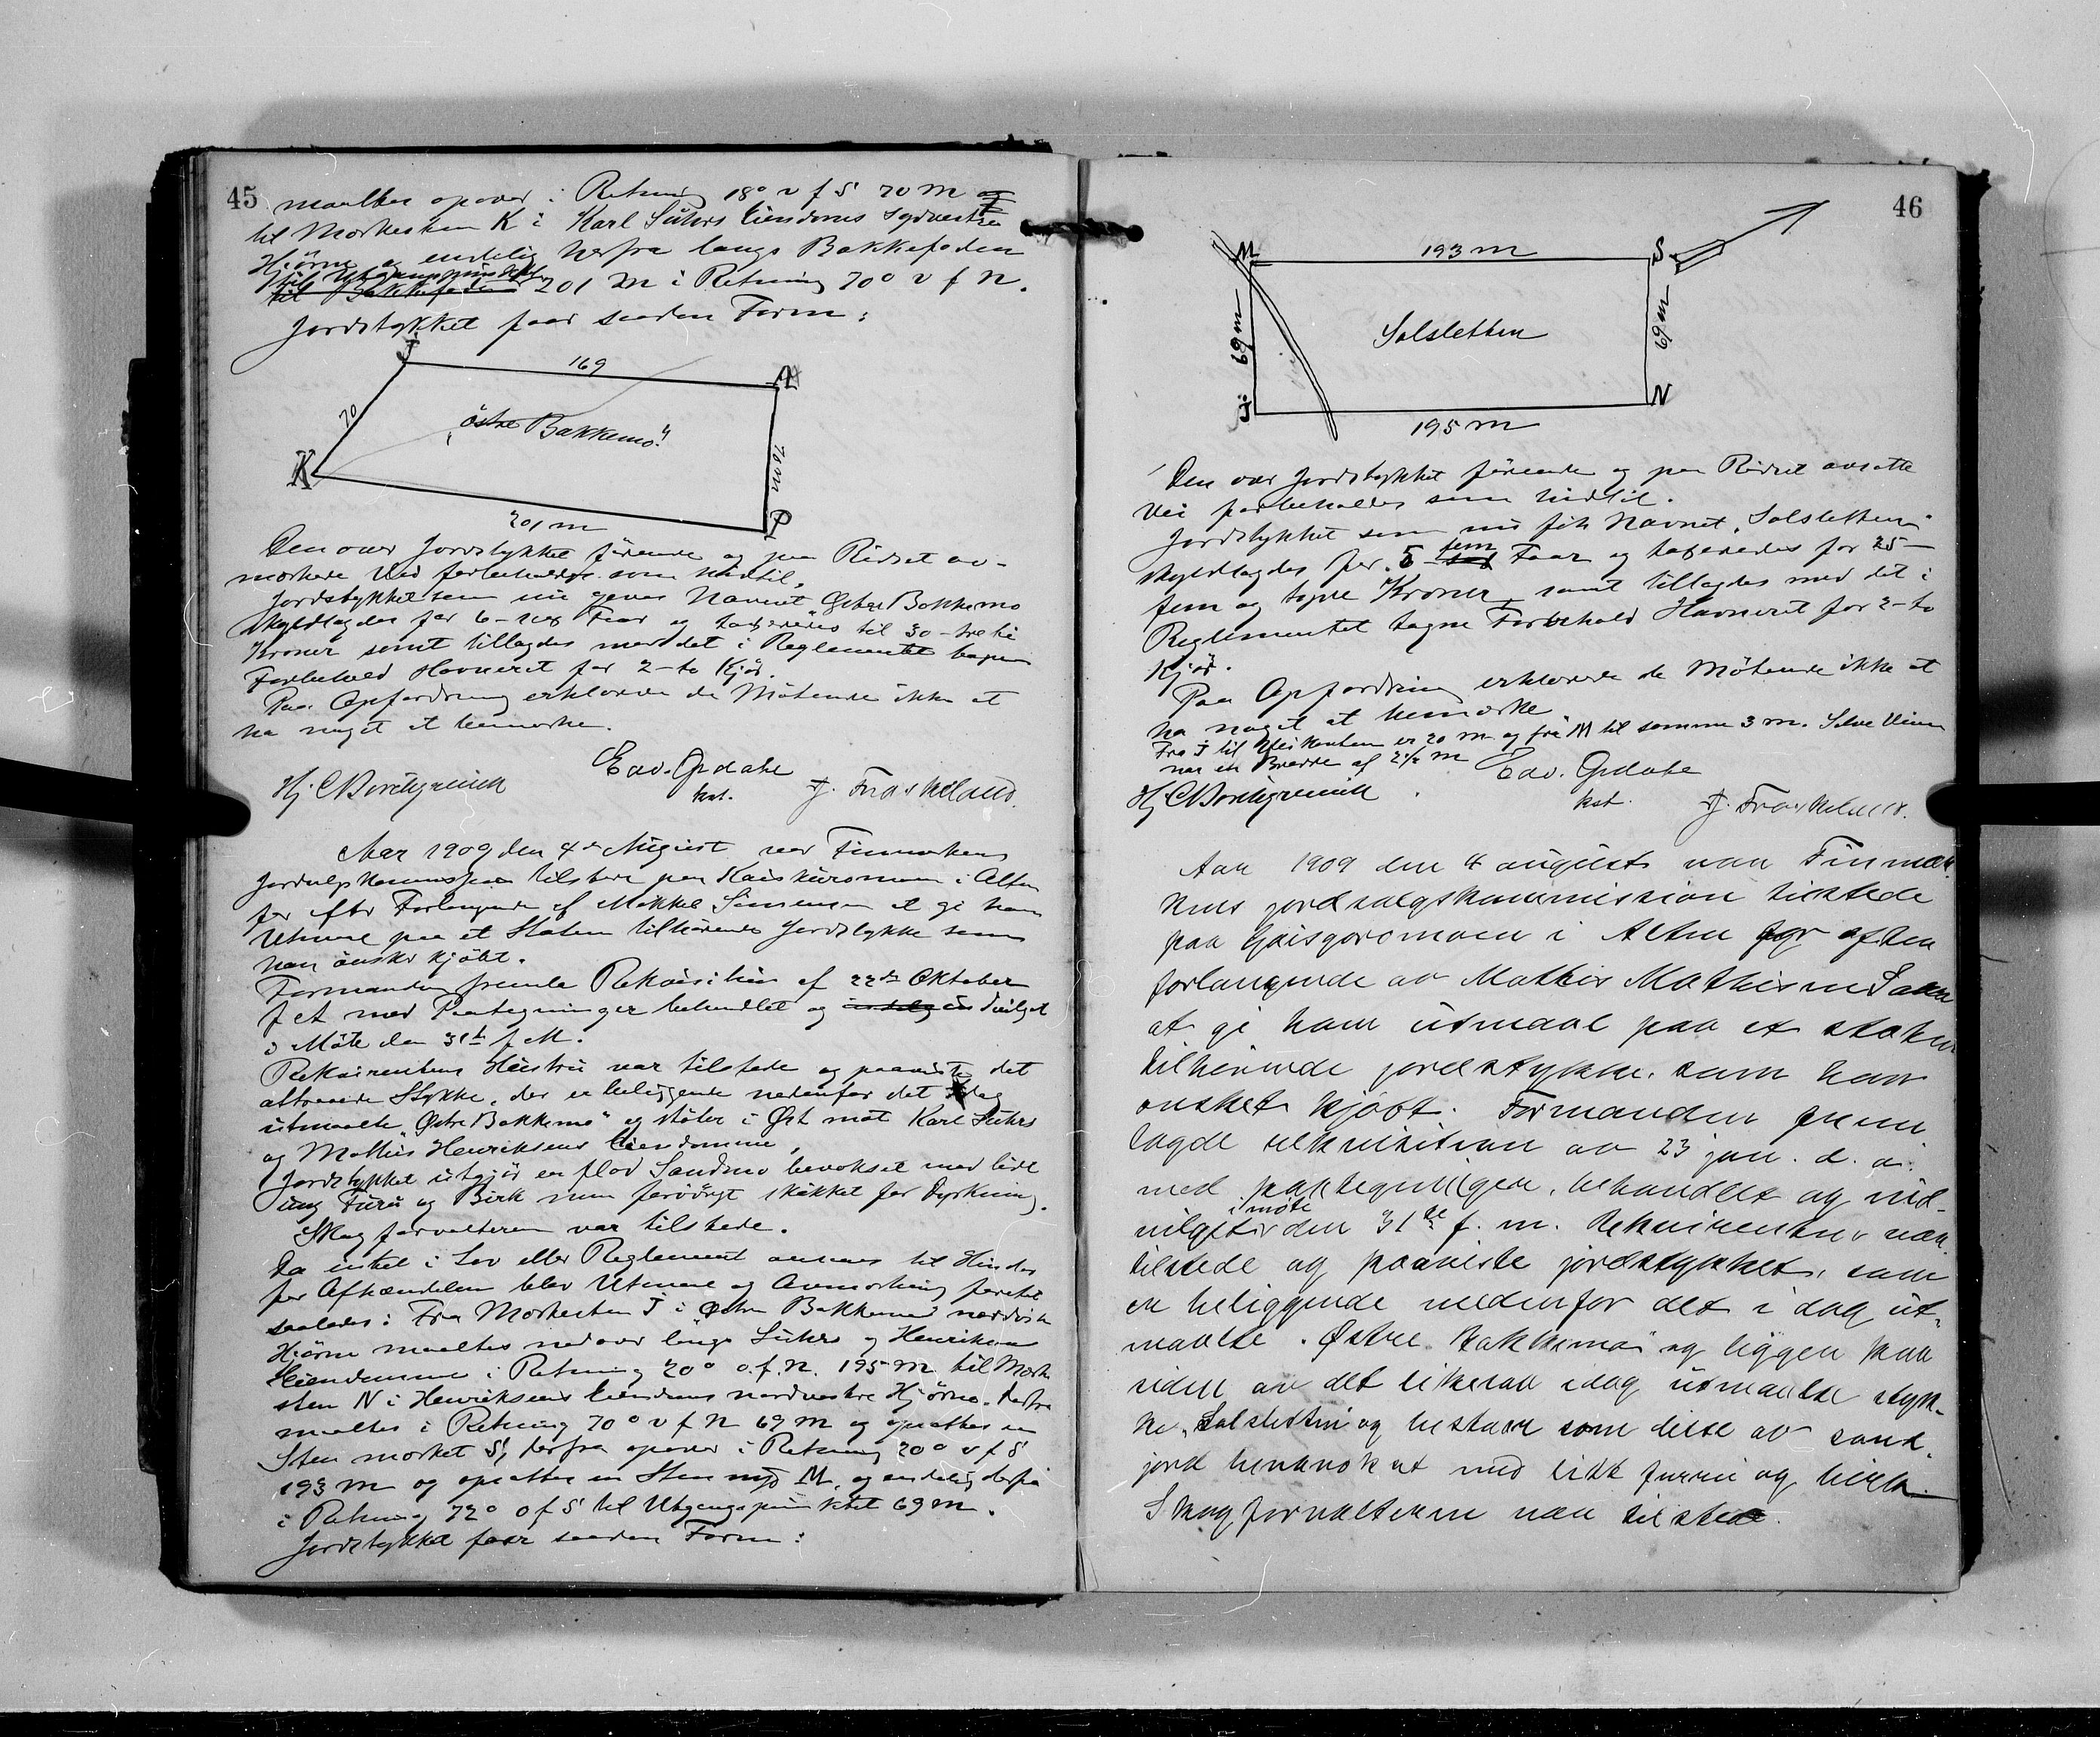 45
maaltes opover i Retning 18° v f S 70 M og
til Merkesten K i Karl Suhrs Eiendoms sydvestre
Hjørne og endelig herfra langs Bakkefoden
til Utgangspunktet
til Bakkefoden 201 M i Retning 70° v f N.
Jordstykket faar saadan Form:
J 169
70
"östre Bakkemo"
K
70 m
201 m
Den over Jordstykket förende og paa Ridset av-
merkede Vei forbeholdes som hidtil.
Jordstykket som nu gives Navnet "Østre Bakkemo
skyldlagdes for 6-sex Øre og taxeredes til 30-treti
Kroner samt tillagdes med det i Reglementet tagne
Forbehold Havneret for 2-to Kjör.
Paa Opfordring erklærede de Mötende ikke at
ha noget at bemerke.
Edv. Opdahl
kst.
Hj. C Borchgrevink
J. Fraskeland.
Aar 1909 den 4de August var Finmarkens
Jordsalgskommission tilstede paa Kaiskuromoen i Alten
for efter Forlangende af Mikkel Simensen at gi ham
Utmaal paa et Staten tilhörende Jordstykke som
han önsker kjöbt.
Formanden fremla Rekvisition af 22de Oktober
f A med Paategninger behandlet og indvilget
i Möte den 31te f M.
Rekvirentens Hustru var tilstede og paaviste det
attraaede Stykke, der er beliggende nedenfor det idag
utmaalte "Østre Bakkemo" og stöter i Øst mot Karl Suhrs
og Mathis Henriksens Eiendomme,
Jordstykket utgjör en flad Sandmo bevokset med lidt
ung Furu og Birk men forövrigt skikket for Dyrkning.
Skogforvalteren var tilstede.
Da intet i Lov eller Reglement ansaaes til Hinder
for Afhændelsen blev Utmaal og Avmerkning foretat
saaledes: Fra Merkesten J i Østre Bakkemos nordöstre
Hjörne maaltes nedover langs Suhrs og Henriksens
Eiendomme i Retning 20° o.f.N. 195 M til Merke-
sten N i Henriksens Eiendoms nordvestre Hjörne. Derfra
maaltes i Retning 70° v f N 69 M og opsattes en
Sten merket S, derfra opover i Retning 20° v f S
193 M og opsattes en Sten mrkt M, og endelig derfra
i Retning 72° o f S til Utgangspunktet 69 M.
Jordstykket faar saadan Form:
46
M 193 m S
69 m
Solsletten
69 m
J N
195 m
Den over Jordstykket förende og paa Ridset avsatte
Vei forbeholdes som hidtil.
Jordstykket som nu fik Navnet "Solsletten"
fem
skyldlagdes for 5- sex Øre og taxeredes for 25-
fem og tyve Kroner, samt tillagdes med det i
Reglementet tagne Forbehold Havneret for 2-to
Kjör.
Paa Opfordring erklærede de Mötende ikke at
ha noget at bemerke
Fra J til Veikanten er 20 m og fra M til samme 3 m. Selve Veien
har en Bredde af 2½ m
Edv. Opdahl
kst.
Hj. C Borchgrevink
J. Fraskeland.
Aar 1909 den 4 august var Finmar-
kens jordsalgskommission tilstede
paa Gaisgoromoen i Alten for efter
forlangende av Mathis Mathisen Sara
at gi ham utmaal paa et staten
tilhörende jordstykke, som han
önsket kjöbt. Formanden frem-
lagde rekvisition av 23 jan. d. a.
med paategninger, behandlet og ind-
i möte
vilget den 31te f. m. Rekvirenten var
tilstede og paaviste jordstykket, som
er beliggende nedenfor det i dag ut-
maalte "Østre Bakkemo" og ligger paa
siden av det likesaa idag utmaalte styk-
ke "Solsletten og bestaar som dette av sand-
jord bevokset med litt furu og birk.
Skogforvalteren var tilstede.